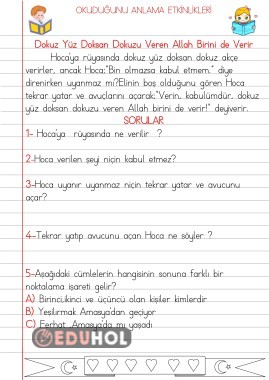 OKUDUĞUNU ANLAMA ETKİNLİKLERİ
Dokuz Yüz Doksan Dokuzu Veren Allah Birini de Verir
Hoca'ya rüyasında dokuz yüz doksan dokuz akçe
verirler, ancak Hoca;"Bin olmazsa kabul etmem." diye
direnirken uyanmaz mı?Elinin boş olduğunu gören Hoca
tekrar yatar ve avuçlarını açarak:"Verin, kabulümdür, dokuz
yüz doksan dokuzu veren Allah birini de verir!" deyiverir.
SORULAR
1- Hoca'ya rüyasında ne verilir ?
2-Hoca verilen şeyi niçin kabul etmez?
3-Hoca uyanır uyanmaz niçin tekrar yatar ve avucunu
açar?
4-Tekrar yatıp avucunu açan Hoca ne söyler ?
5-Aşağıdaki cümlelerin hangisinin sonuna farklı bir
noktalama işareti gelir?
A) Birinci,ikinci ve üçüncü olan kişiler kimlerdir
B) Yeşilırmak Amasya'dan geçiyor
C) Ferhat Amasya'da mı yaşadı
EDUHOL